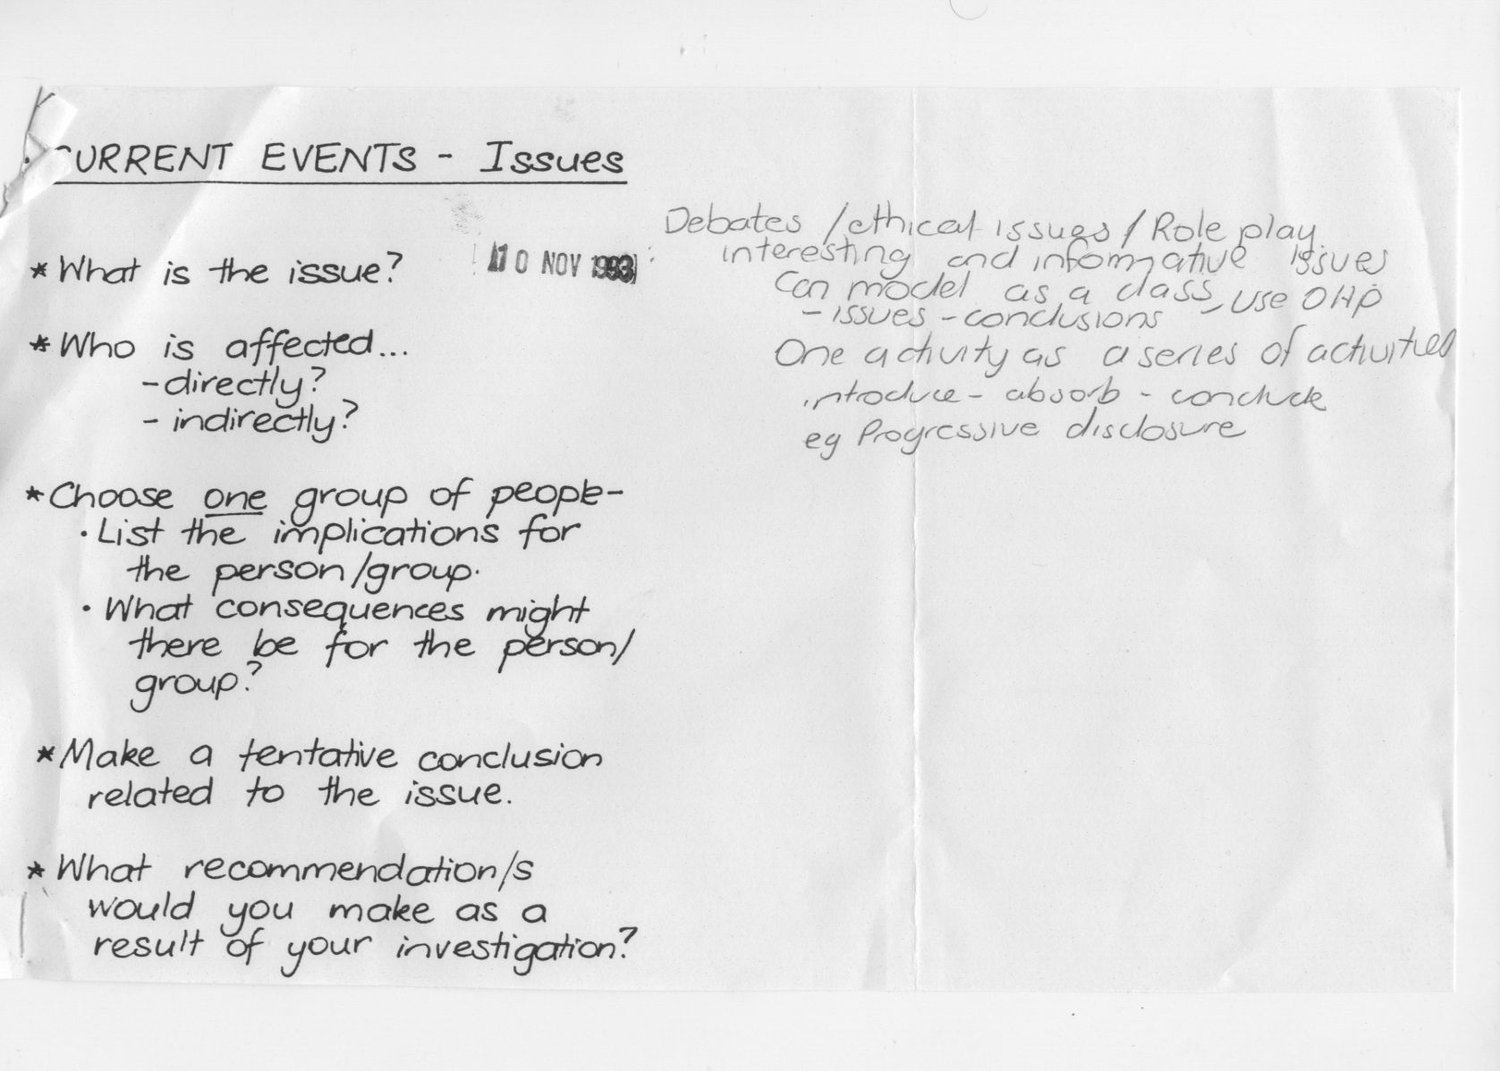 CURRENT EVENTS - Issues
* What is the issue?
10 NOV 1993
* Who is affected...
- directly?
- indirectly?
* Choose one group of people -
• List the implications for
the person/group.
• What consequences might
there be for the person/
group?
* Make a tentative conclusion
related to the issue.
* What recommendation/s
would you make as a
result of your investigation?
Debates / ethical issues / Role play
interesting and informative issues
Can model as a class - use OHP
- issues - conclusions
One activity as a series of activities
introduce - absorb - conclude
eg Progressive disclosure